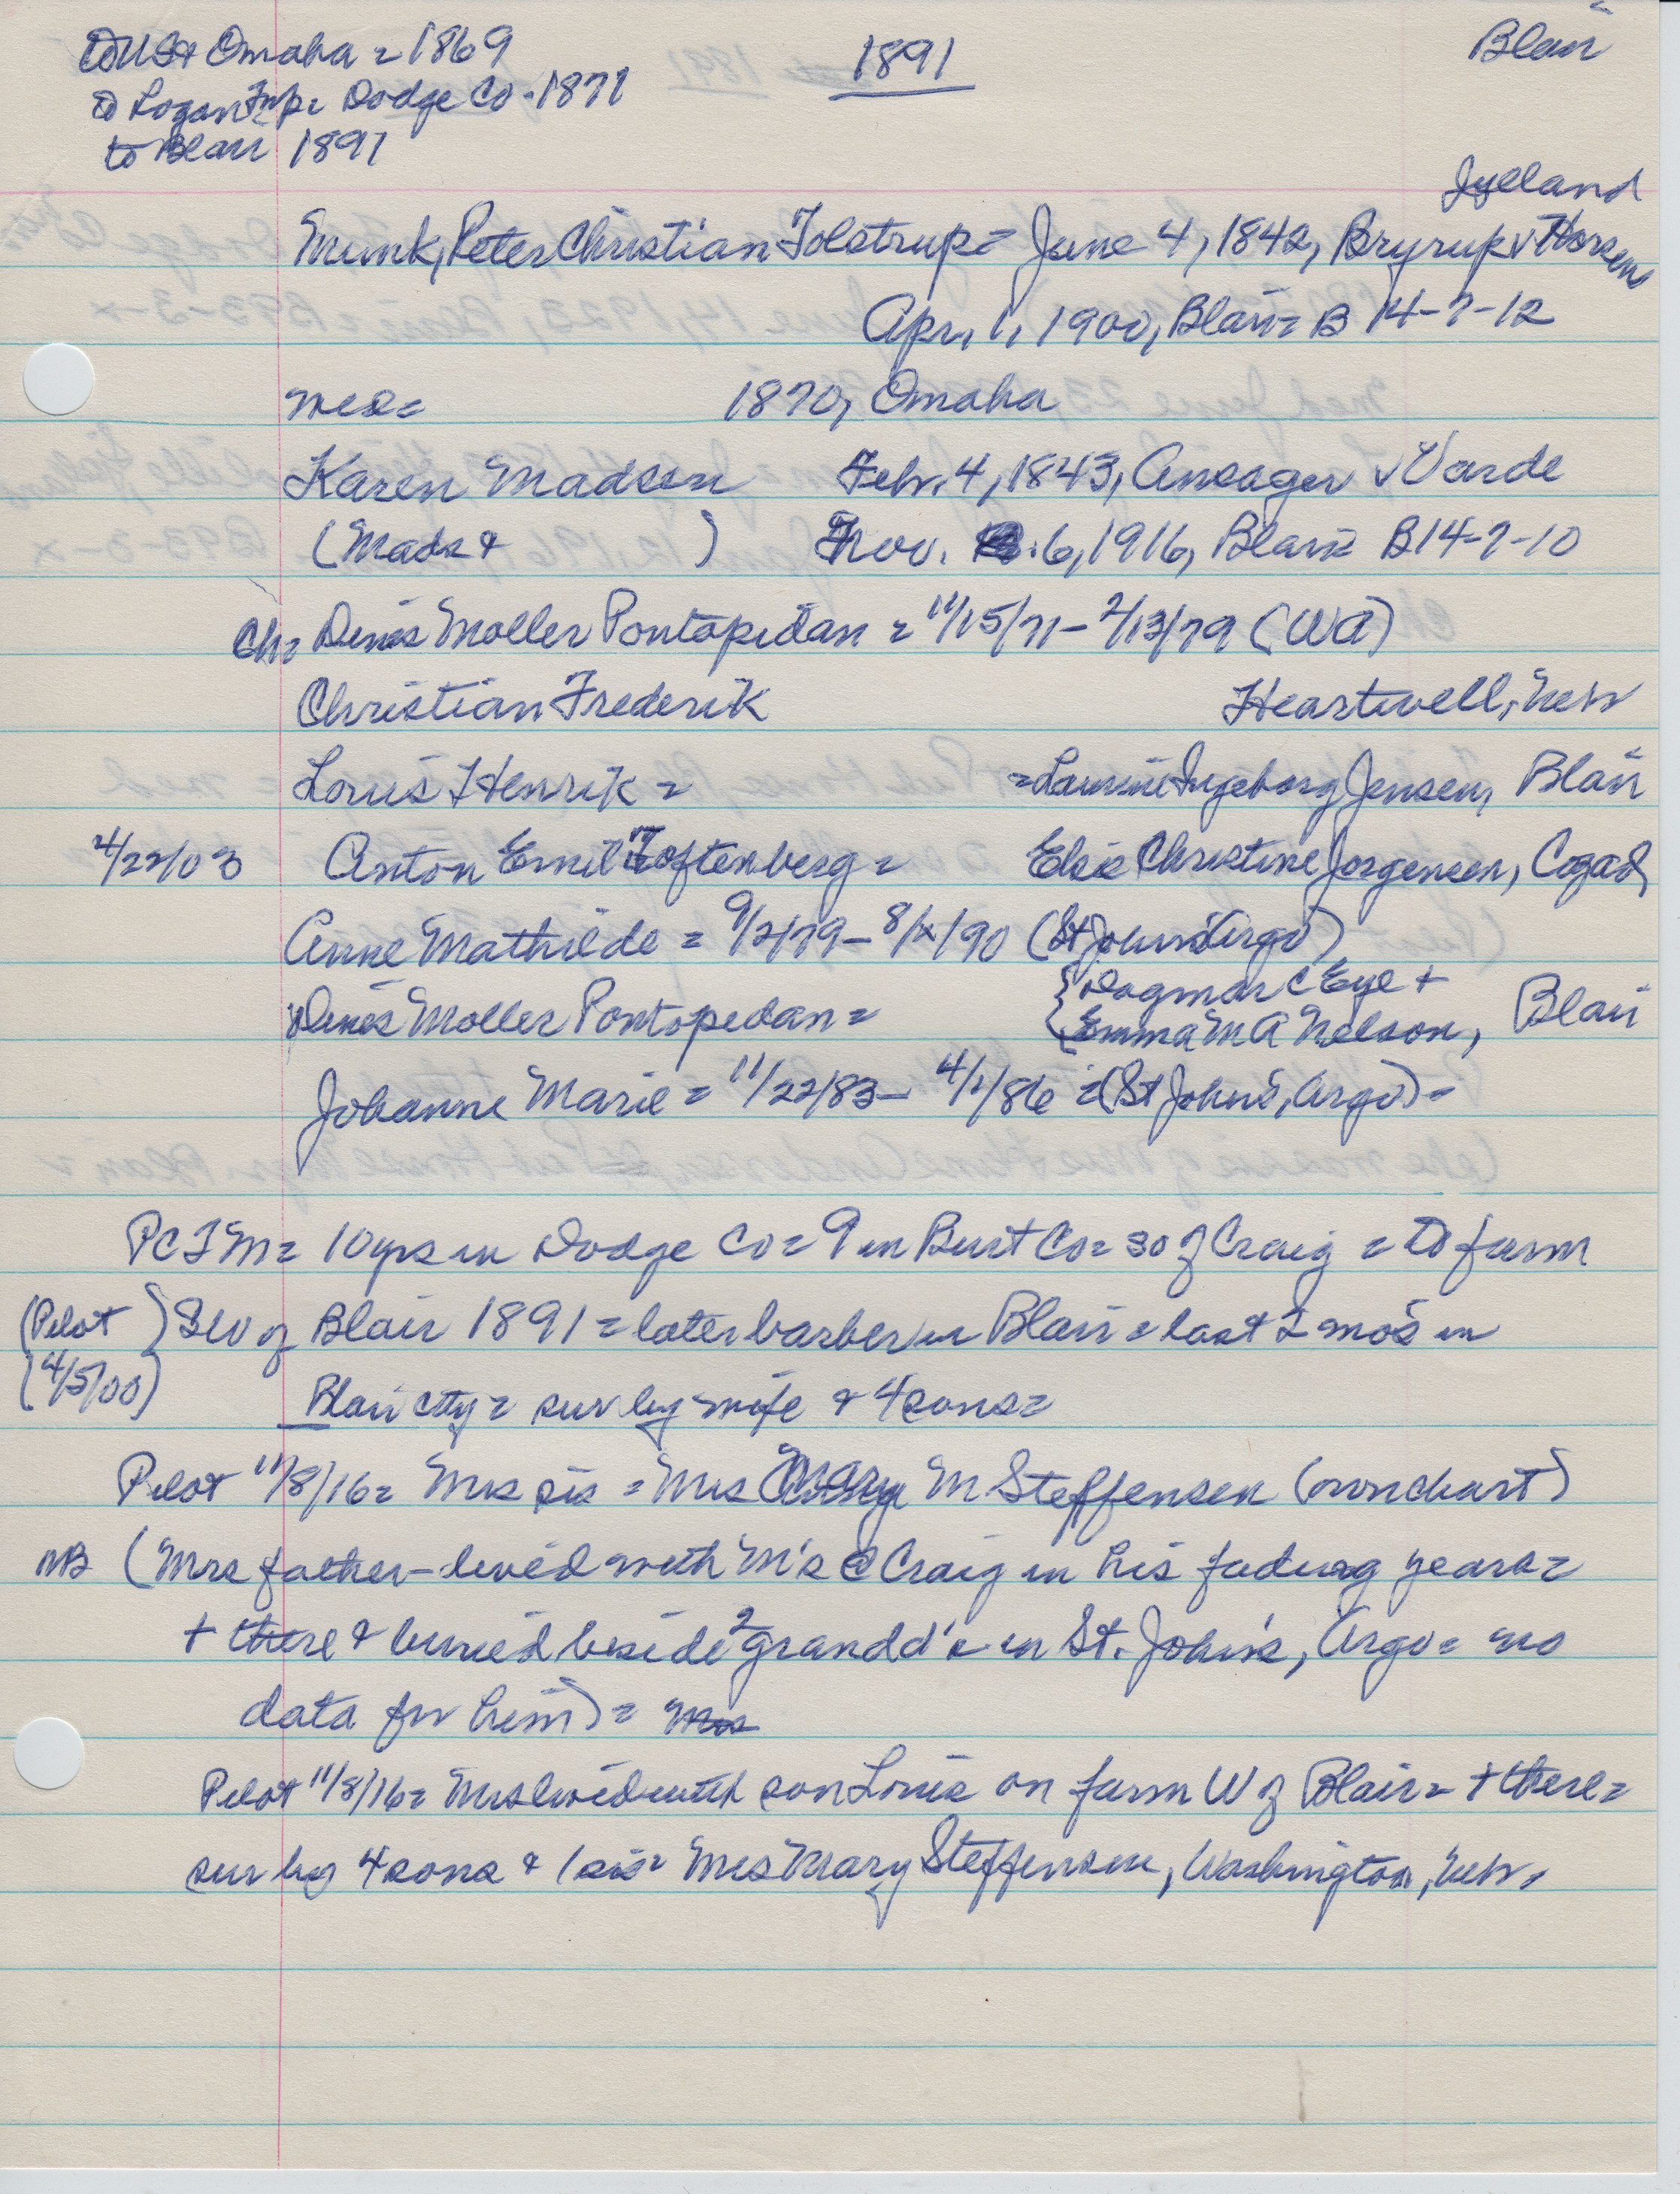 to US & Omaha = 1869
to Logan Twp. Dodge Co - 1871
to Blair 1891
1891
Blair
Jylland
Munk, Peter Christian Tolstrup = June 4, 1842, Bryrup v Horsens
Apr. 1, 1900, Blair = B 14-7-12
med = 1870, Omaha
Karen Madsen Febr. 4, 1843, Ansager v Varde
(Mads & ) Nov. 6, 1916, Blair = B14-7-10
Ch = Dines Moller Pontopidan = 11/15/71 - 2/13/79 (WA)
Christian Frederik Heartwell, Nebr
Louis Henrik = = Laurine Ingeborg Jensen, Blair
2/22/03 Anton Emil Toftenberg = Elsie Christine Jorgensen, Cozad
Anne Mathilde = 9/2/79 - 8/x/90 (St John's Argo)
{Dagmar C Eye +
Dines Moller Pontopedan = {Emma M A Nelson, Blair
Johanne Marie = 11/22/83 - 4/1/86 = (St John's, Argo) =
PCTM = 10 yrs in Dodge Co = 9 in Burt Co = so of Craig = to farm
(Pilot 4/5/00) SW of Blair 1891 = later barber in Blair = last 2 mos in
Blair city = sur by wife & 4 sons =
Pilot 11/8/16 = Mrs sis = Mrs Mary M Steffensen (own chart)
NB (Mrs father - lived with M's @ Craig in his fading years =
+ there & buried beside 2 grandd's in St. John's, Argo = no
data for him) = Mrs
Pilot 11/8/16 = Mrs lived with son Louis on farm W of Blair = + there =
sur by 4 sons & 1 sis = Mrs Mary Steffensen, Washington, Nebr.